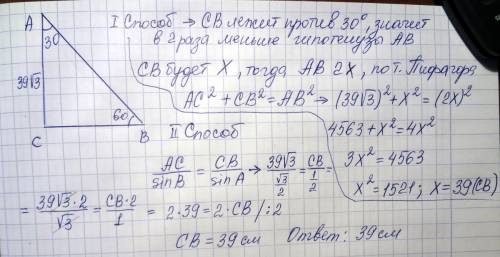 A
30
39√3
C
60°
B
I Способ → CB лежит против 30°, значит
в 2 раза меньше гипотенузы AB
CB будет X, тогда AB 2X, по т. Пифагора
AC² + CB² = AB² → (39√3)² + X² = (2X)²
4563 + X² = 4X²
3X² = 4563
X² = 1521; X = 39 (CB)
II Способ
AC/sin B = CB/sin A → 39√3/(√3/2) = CB/(1/2) =
= 39√3·2/√3 = CB·2/1 = 2·39 = 2·CB /:2
CB = 39 см Ответ: 39 см